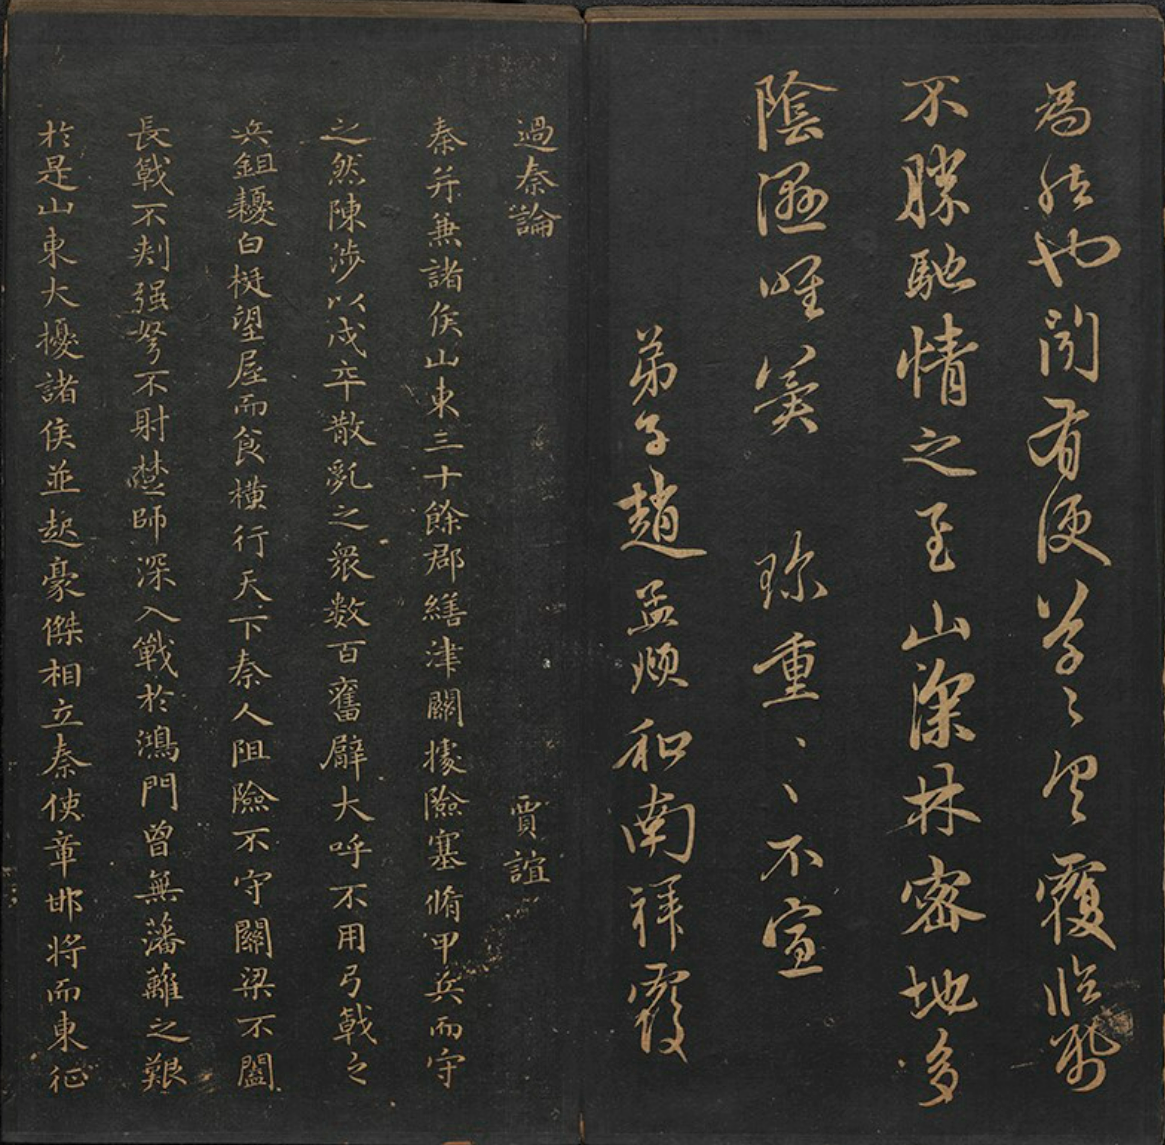 也有便草〻具覆臨
不勝馳情之至山深林密地多
陰濕唯冀　珍重〻〻不宣
弟子趙孟頫和南拜覆
過秦論　賈誼
秦并兼諸侯山東三十餘郡繕津關據險塞脩甲兵而守
之然陳涉以戍卒散亂之衆數百奮臂大呼不用弓戟之
兵鉏耰白梃望屋而食橫行天下秦人阻險不守關梁不闔
長戟不刺强弩不射楚師深入戰於鴻門曾無藩籬之艱
於是山東大擾諸侯並起豪傑相立秦使章邯將而東征